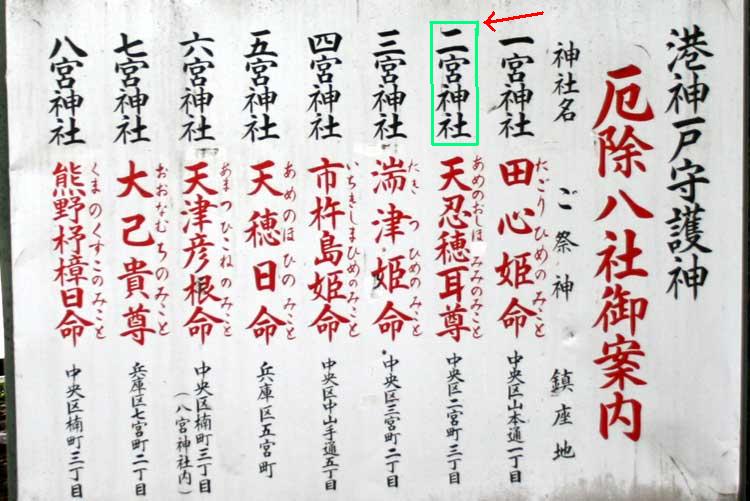 港神戸守護神
厄除八社御案内
神社名 ご祭神 鎮座地
一宮神社 田心姫命 たごりひめのみこと 中央区山本通一丁目
二宮神社 天忍穂耳尊 あめのおしほみみのみこと 中央区二宮町三丁目
三宮神社 湍津姫命 たきつひめのみこと 中央区三宮町二丁目
四宮神社 市杵島姫命 いちきしまひめのみこと 中央区中山手通五丁目
五宮神社 天穂日命 あめのほひのみこと 兵庫区五宮町
六宮神社 天津彦根命 あまつひこねのみこと 中央区楠町三丁目(八宮神社内)
七宮神社 大己貴尊 おおなむちのみこと 兵庫区七宮町二丁目
八宮神社 熊野杼樟日命 くまのくすこのみこと 中央区楠町三丁目